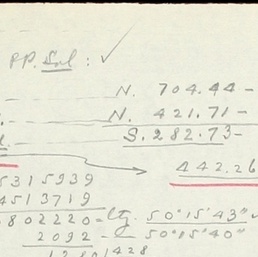 PP. Sol : ✓
N. 704.44 -
N. 421.71 -
S. 282.73 -
442.26
5315939
4513719
802220 - ltg. 50°15'43"
2092 - 50°15'40"
1801428